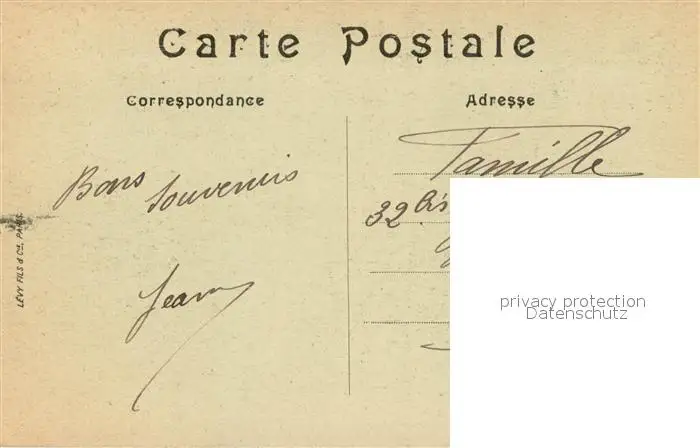 Carte Postale
Correspondance
Adresse
Bons Souvenirs
Jean
Famille
32 bis
privacy protection
Datenschutz
LÉVY FILS & Cie, PARIS